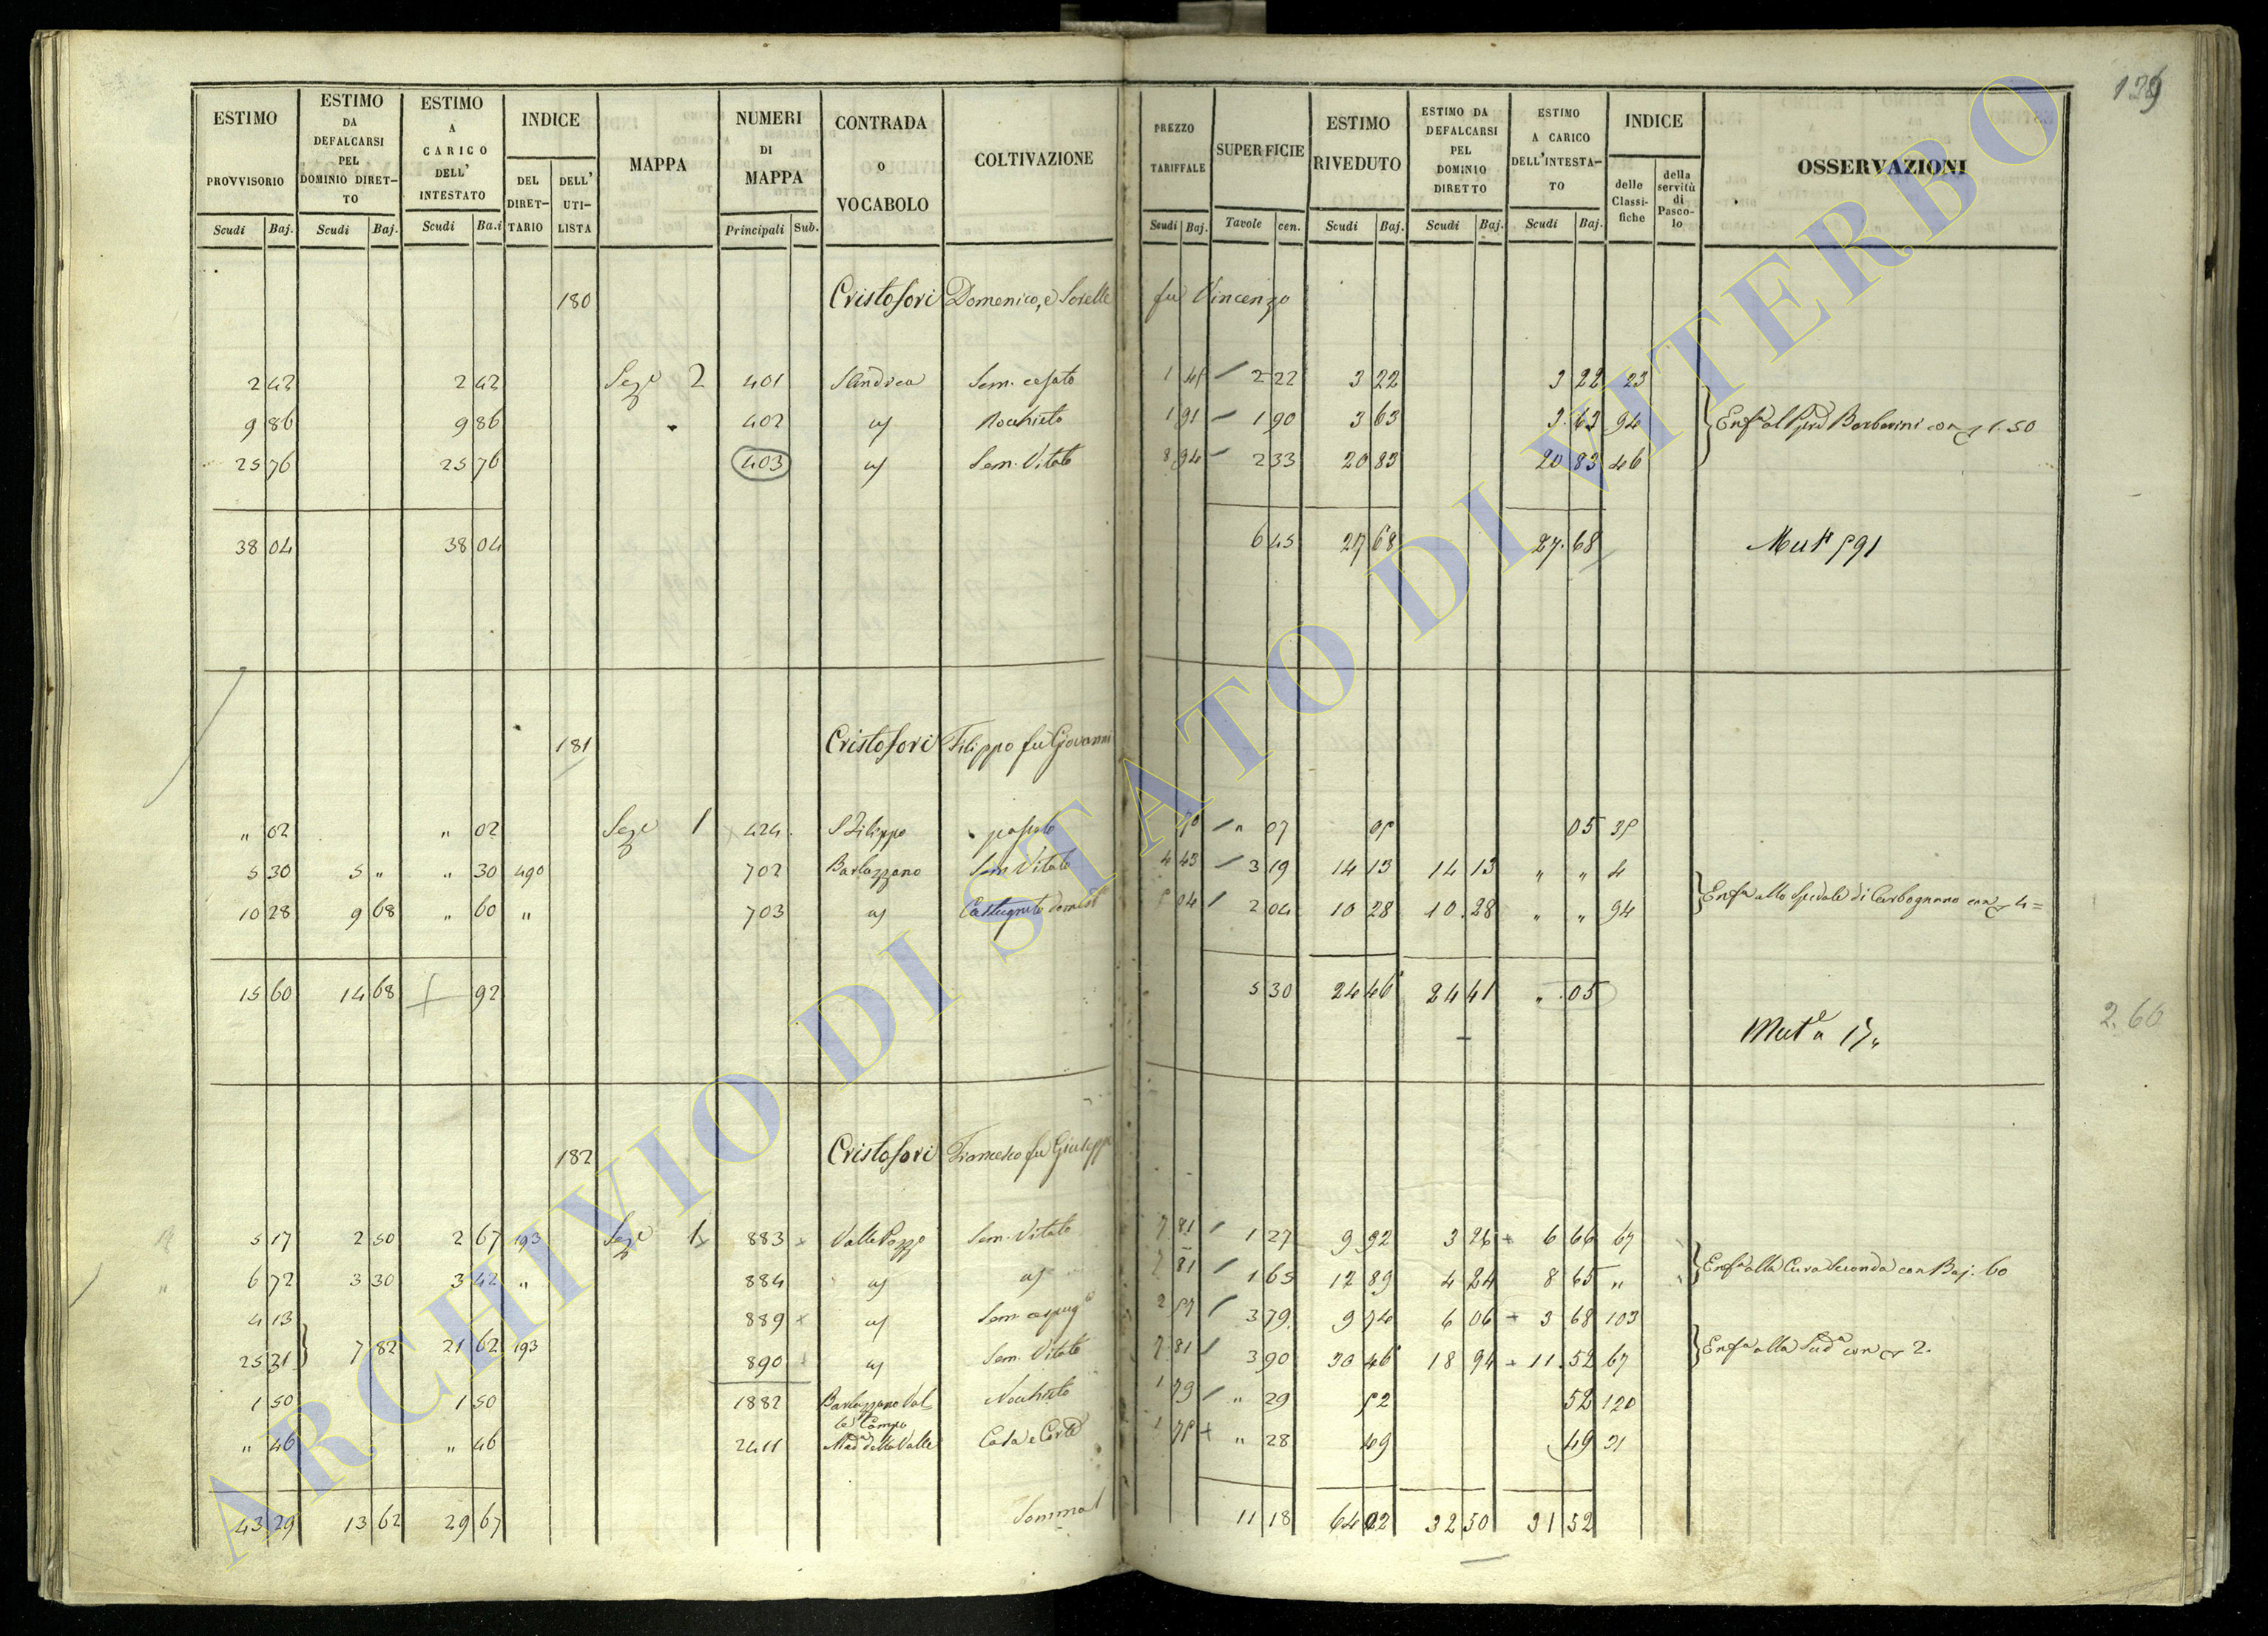 139
ESTIMO PROVVISORIO Scudi Baj.
ESTIMO DA DEFALCARSI PEL DOMINIO DIRETTO Scudi Baj.
ESTIMO A CARICO DELL' INTESTATO Scudi Ba.i
INDICE DEL DIRETTARIO DELL' UTILISTA
MAPPA
NUMERI DI MAPPA Principali Sub.
CONTRADA O VOCABOLO
COLTIVAZIONE
PREZZO TARIFFALE Scudi Baj.
SUPERFICIE Tavole cen.
ESTIMO RIVEDUTO Scudi Baj.
ESTIMO DA DEFALCARSI PEL DOMINIO DIRETTO Scudi Baj.
ESTIMO A CARICO DELL'INTESTATO Scudi Baj.
INDICE delle Classifiche della servitù di Pascolo
OSSERVAZIONI
180 Cristofori Domenico, e Sorelle fu Vincenzo
2 42 2 42 Sez.e 2 401 S Andrea Sem. cesato 1 45 2 22 3 22 3 22 23
9 86 9 86 402 " Nocchieto 1 91 1 90 3 63 3 63 94 Enf.a al Barberini con 1.50
25 76 25 76 403 " Sem. Vitato 8 94 2 33 20 83 20 83 46
38 04 38 04 6 45 27 68 27.68 Mut.e 591
181 Cristofori Filippo fu Giovanni
" 02 " 02 Sez.e 1 424 S Filippo pascolo 70 " 07 05 05 35
5 30 5 " " 30 490 702 Barlazzano Sem Vitato 4 43 3 19 14 13 14 13 " " 4
10 28 9 68 " 60 " 703 " Castagneto domest 5 04 2 04 10 28 10.28 " " 94 Enf.a allo Spedale di Carbognano con 4=
15 60 14 68 92 5 30 24 46 24 41 " 05
Mut.e a 17
2.60
182 Cristofori Francesco fu Giuseppe
5 17 2 50 2 67 193 Sez.e 1 883 Valle Pozzo Sem. Vitato 7 81 1 27 9 92 3 26 6 66 67
6 72 3 30 3 42 " 884 " " 7 81 1 65 12 89 4 24 8 65 " Enf.a alla Cura Seconda con Baj. 60
4 13 889 " Sem. 2 57 3 79 9 74 6 06 3 68 103
25 31 7 82 21 62 193 890 " Sem. Vitato 7 81 3 90 30 46 18 94 11.52 67 Enf.a alla Sud.a con 2.
1 50 1 50 1882 Barlazzano Valle Campo Nocchieto 1 79 " 29 52 52 120
" 46 " 46 2411 Mad.a della Valle Casa e Corte 1 75 " 28 49 49 31
43 29 13 62 29 67 Somma 11 18 64 02 32 50 31 52
ARCHIVIO DI STATO DI VITERBO